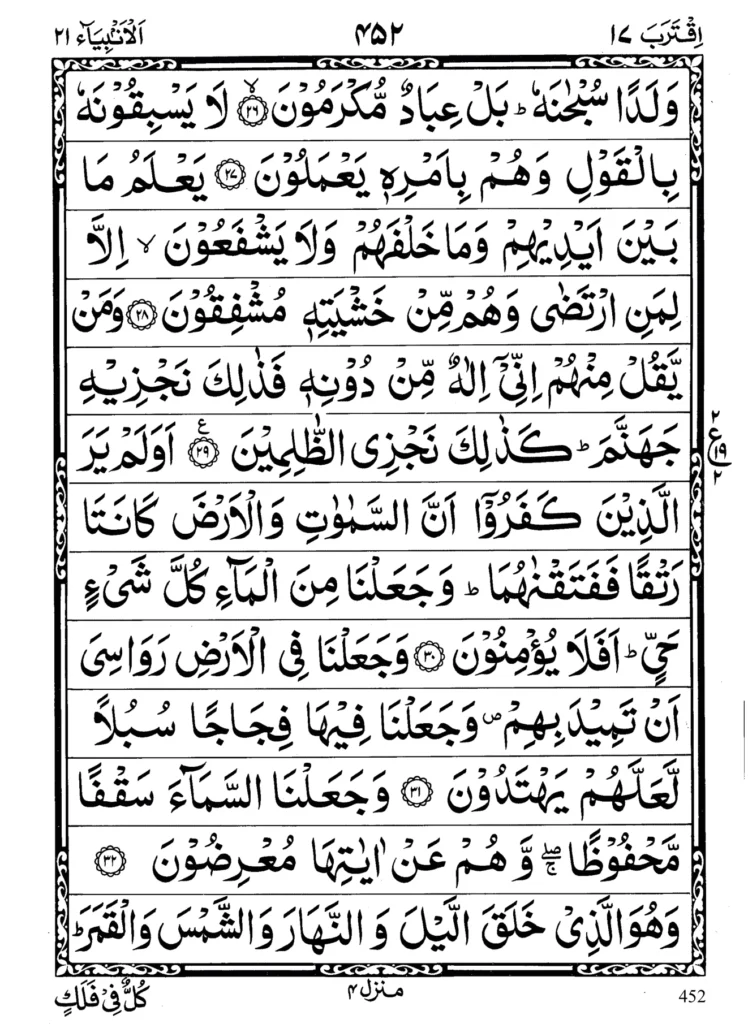 اِقْتَرَبَ ١٧ ۴۵۲ اَلْاَنْۢبِيَآء ٢١
وَلَدًا سُبْحٰنَهٗ ؕ بَلْ عِبَادٌ مُّكْرَمُوْنَ ۙ‏﴿۲۶﴾ لَا يَسْبِقُوْنَهٗ
بِالْقَوْلِ وَهُمْ بِاَمْرِهٖ يَعْمَلُوْنَ ﴿۲۷﴾ يَعْلَمُ مَا
بَيْنَ اَيْدِيْهِمْ وَمَا خَلْفَهُمْ وَلَا يَشْفَعُوْنَ ۙ اِلَّا
لِمَنِ ارْتَضٰى وَهُمْ مِّنْ خَشْيَتِهٖ مُشْفِقُوْنَ ﴿۲۸﴾ وَمَنْ
يَّقُلْ مِنْهُمْ اِنِّىْۤ اِلٰهٌ مِّنْ دُوْنِهٖ فَذٰلِكَ نَجْزِيْهِ
جَهَنَّمَ ؕ كَذٰلِكَ نَجْزِى الظّٰلِمِيْنَ ﴿۲۹﴾ ع اَوَلَمْ يَرَ
الَّذِيْنَ كَفَرُوْۤا اَنَّ السَّمٰوٰتِ وَالْاَرْضَ كَانَتَا
رَتْقًا فَفَتَقْنٰهُمَا ؕ وَجَعَلْنَا مِنَ الْمَآءِ كُلَّ شَىْءٍ
حَىٍّ ؕ اَفَلَا يُؤْمِنُوْنَ ﴿۳۰﴾ وَجَعَلْنَا فِى الْاَرْضِ رَوَاسِىَ
اَنْ تَمِيْدَ بِهِمْ ۖ وَجَعَلْنَا فِيْهَا فِجَاجًا سُبُلًا
لَّعَلَّهُمْ يَهْتَدُوْنَ ﴿۳۱﴾ وَجَعَلْنَا السَّمَآءَ سَقْفًا
مَّحْفُوْظًا ۖۚ وَّهُمْ عَنْ اٰيٰتِهَا مُعْرِضُوْنَ ﴿۳۲﴾
وَهُوَ الَّذِىْ خَلَقَ الَّيْلَ وَ النَّهَارَ وَالشَّمْسَ وَالْقَمَرَ ؕ
٢ ع ١٩ ٢
كُلٌّ فِىْ فَلَكٍ منزل ۴ 452